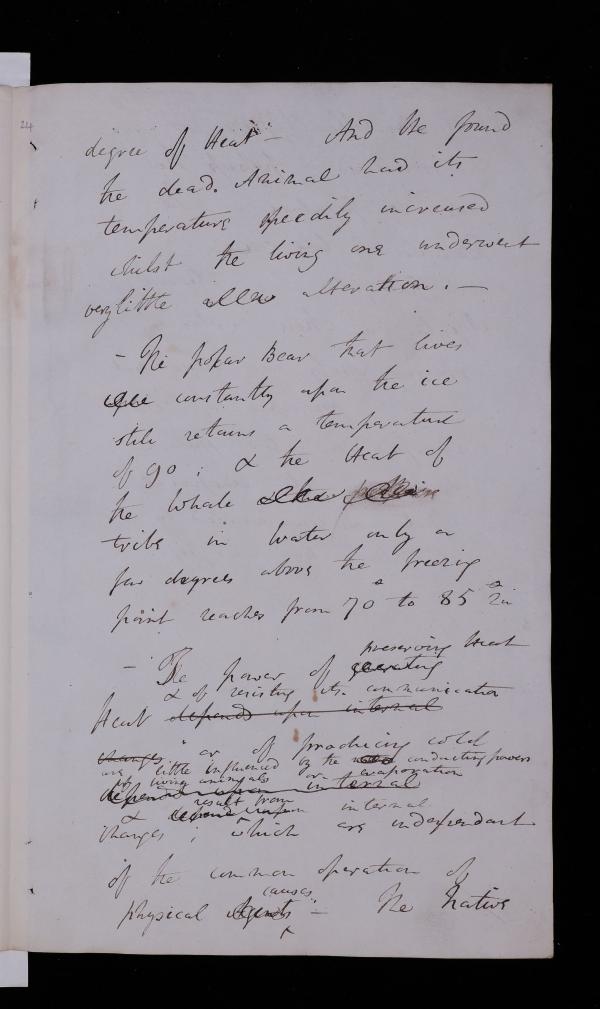 24
degree of Heat" - And He found
the dead. Animal had its
temperature speedily increased
whilst the living one underwent
very little alteration. -
- The polar Bear that lives
constantly upon the ice
still retains a temperature
of 90; & the Heat of
the Whale
tribe in Water only a
few degrees above the freezing
point reaches from 70° to 85°
preserving Heat
- The power of generating
& of resisting its communication
Heat depends upon internal
changes or of producing cold
are little influenced by the conducting powers
of living animals or evaporation
depend upon internal
result from
& depend upon internal
changes; which are independant
of the common operation of
causes
physical Agents - The Native